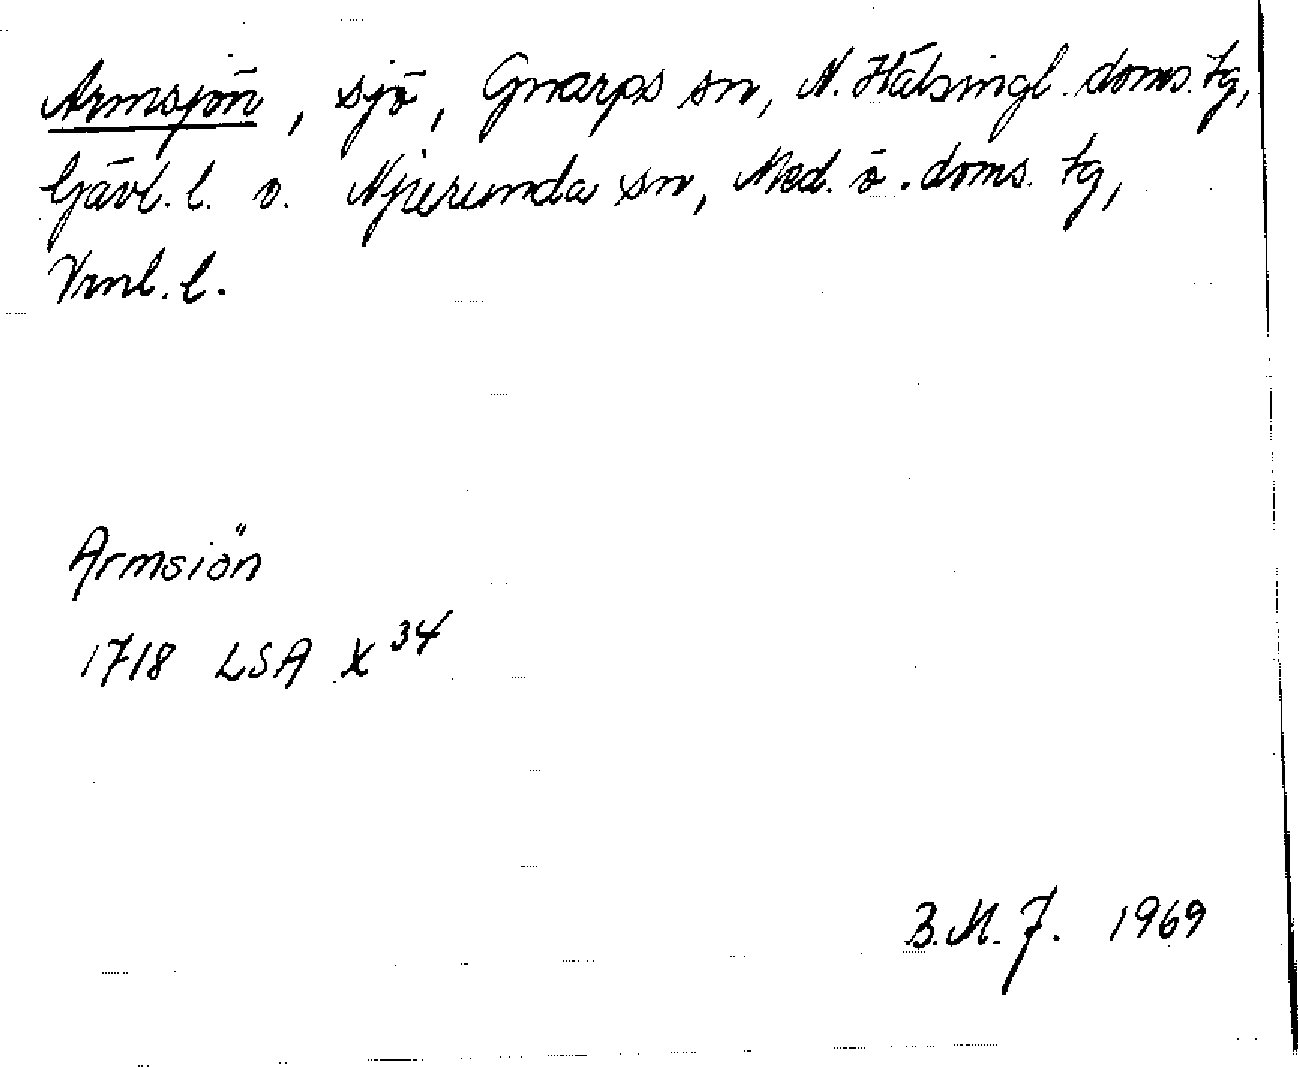 Armsjön, sjö, Gnarps sn, N. Hälsingl. doms. tg,
Gävl. l. o. Njurunda sn, Med. ö. doms. tg,
Vrnl. l.
Armsiön
1718 LSA X 34
B.M.J. 1969